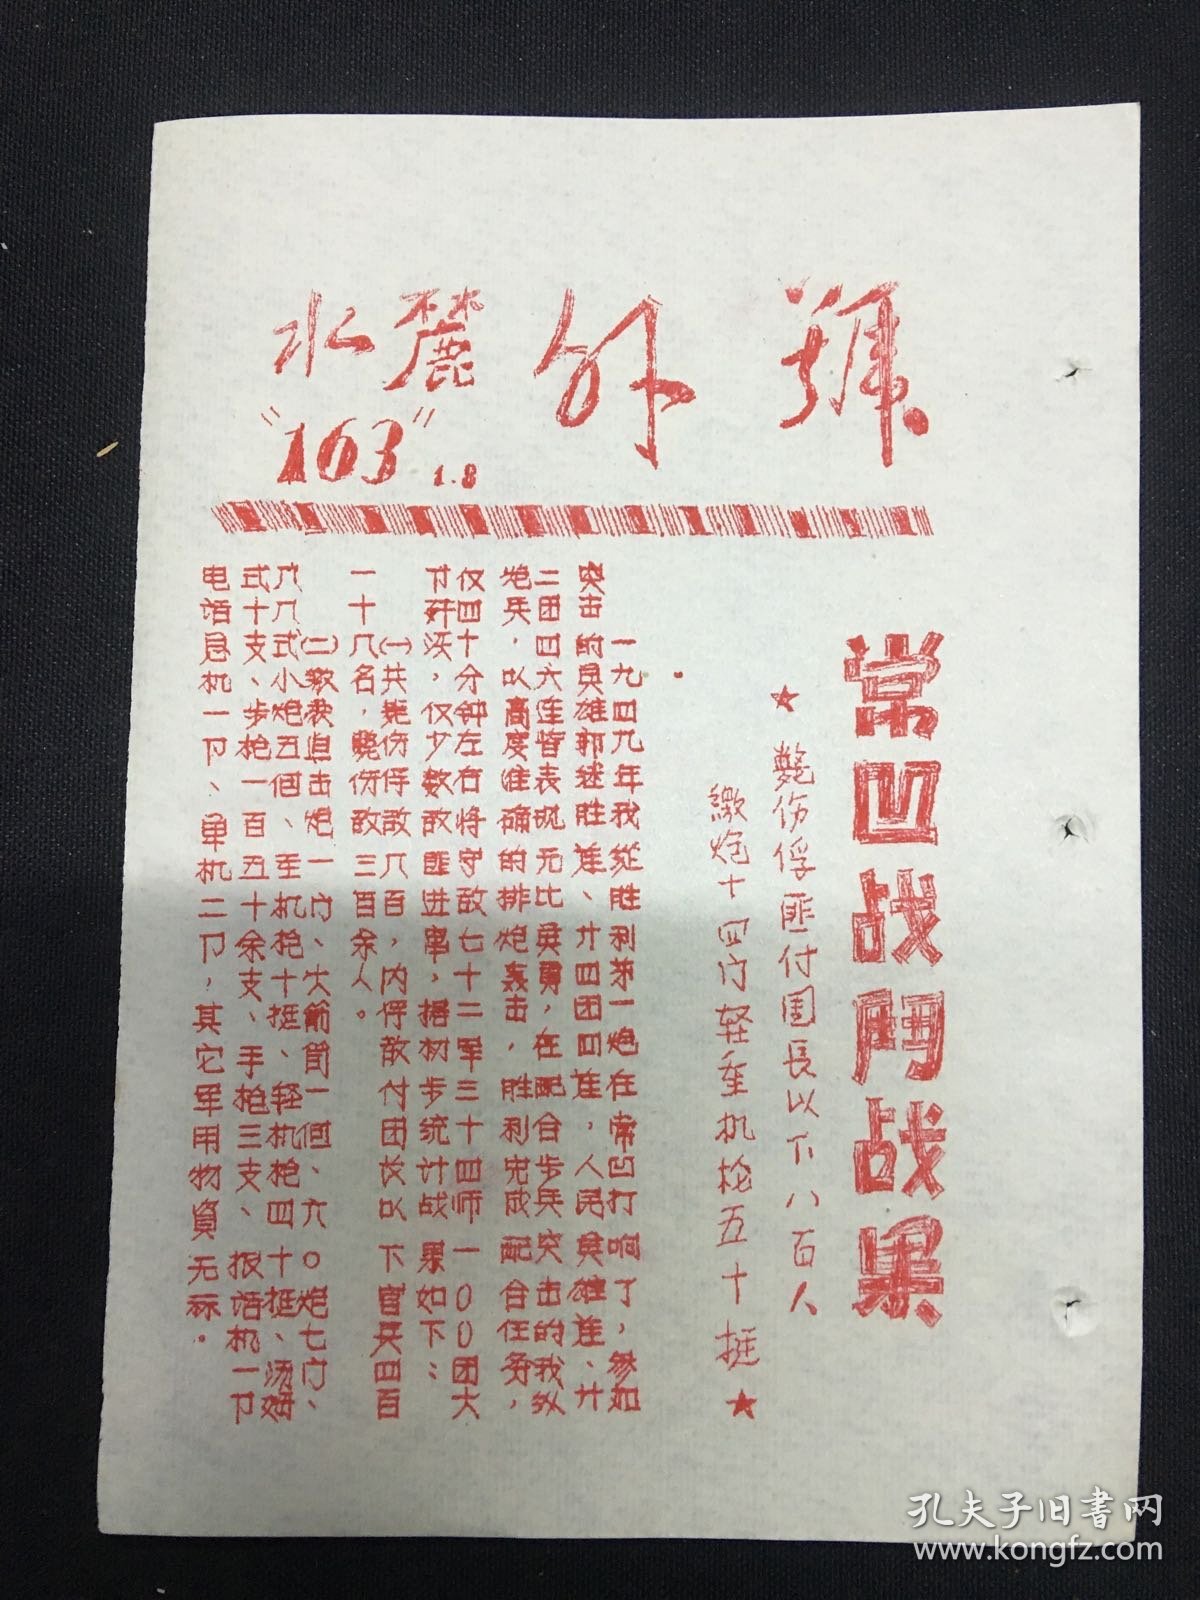 號外
水麓
"163"
1.8
常凹战鬥战果
★ 毙伤俘匪付团長以下八百人
繳炮十四门轻重机枪五十挺 ★
一九四九年我纵胜利第一炮在常凹打响了，参加
突击的英雄郭继胜连、廿四团四连，人民英雄连、廿
二团四六连皆表现无比英勇，在配合步兵突击的我纵
炮兵，以高度准确的排炮轰击，胜利完成配合任务，
仅四十分钟左右将守敌七十二军三十四师一〇〇团大
部歼灭，仅少数敌匪进窜，据初步统计战果如下：
㈠共毙伤俘敌八百，内俘敌付团长以下官兵四百
一十八名，毙伤敌三百余人。
㈡缴获自击炮一门、火箭筒一個、六〇炮七门、
八八式小炮五個、重机枪十挺、轻机枪四十挺、汤姆
式十支、步枪一百五十余支、手枪三支、报话机一部
电话总机一部、单机二部，其它军用物資无标．
孔夫子旧書网
www.kongfz.com